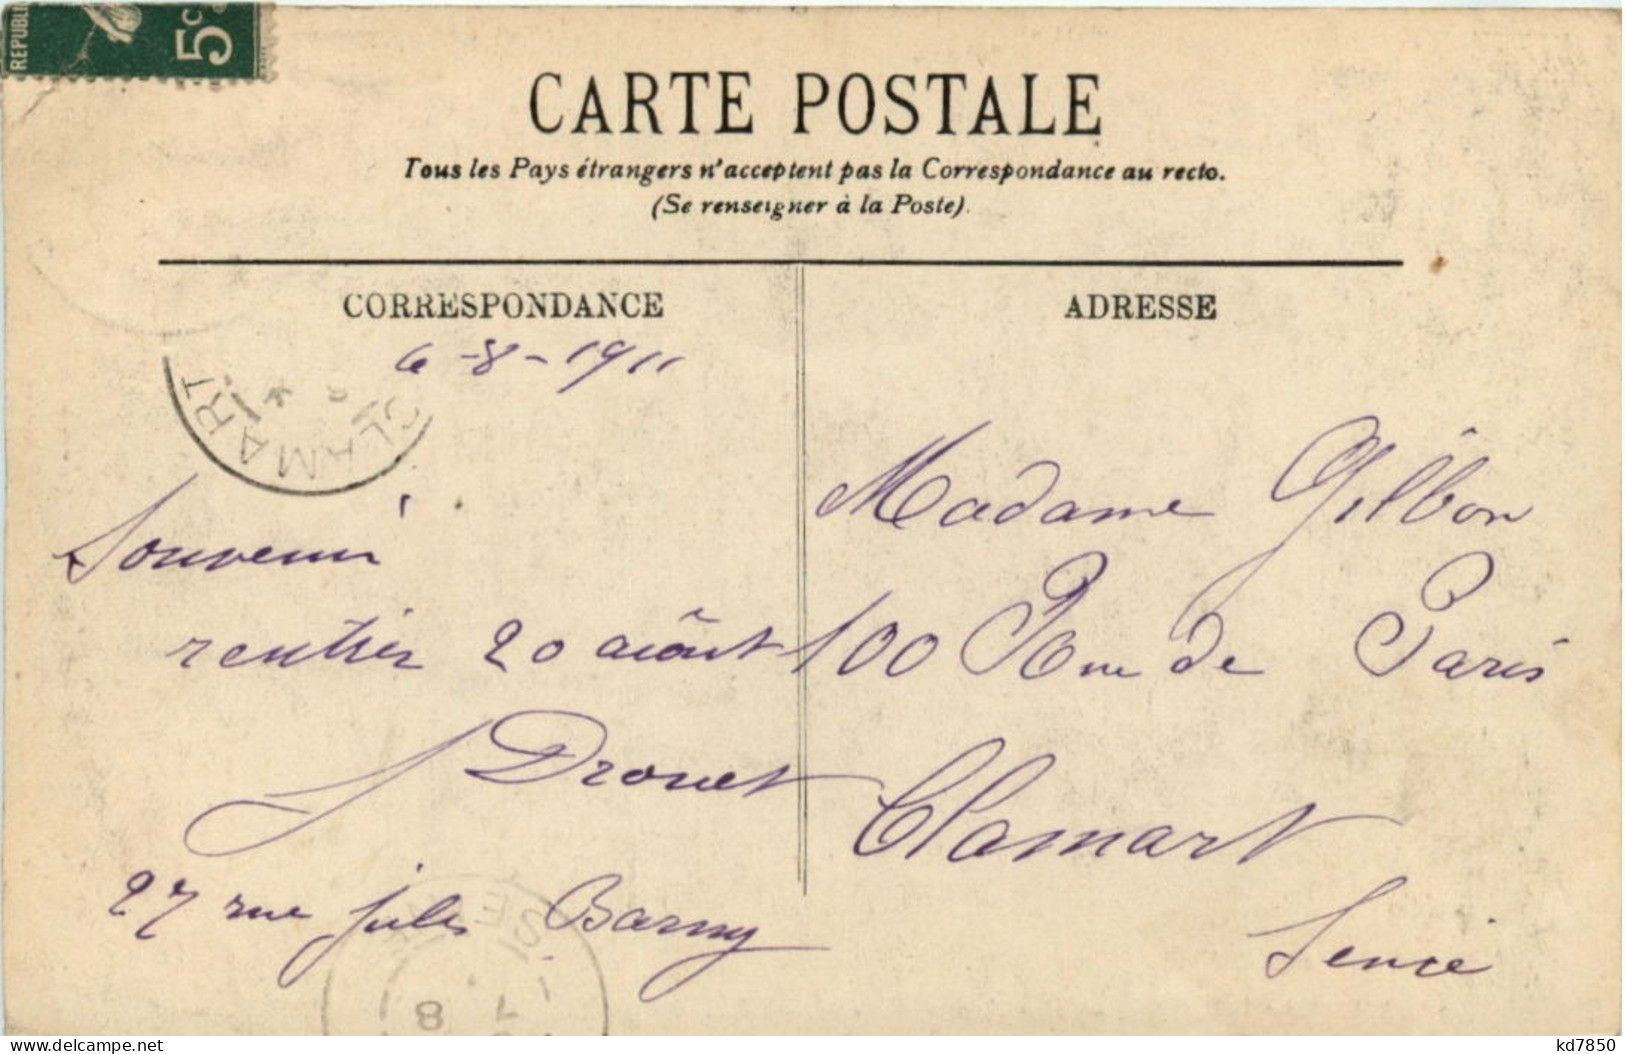 REPUBLIQ
5c
CARTE POSTALE
Tous les Pays étrangers n'acceptent pas la Correspondance au recto.
(Se renseigner à la Poste).
CORRESPONDANCE
6-8-1911
CLAMART
Souvenir
rentrer 20 août
Drouet
27 rue jules Barny
ADRESSE
Madame Gilbon
100 Rue de Paris
Clamart
Seine
8
kd7850